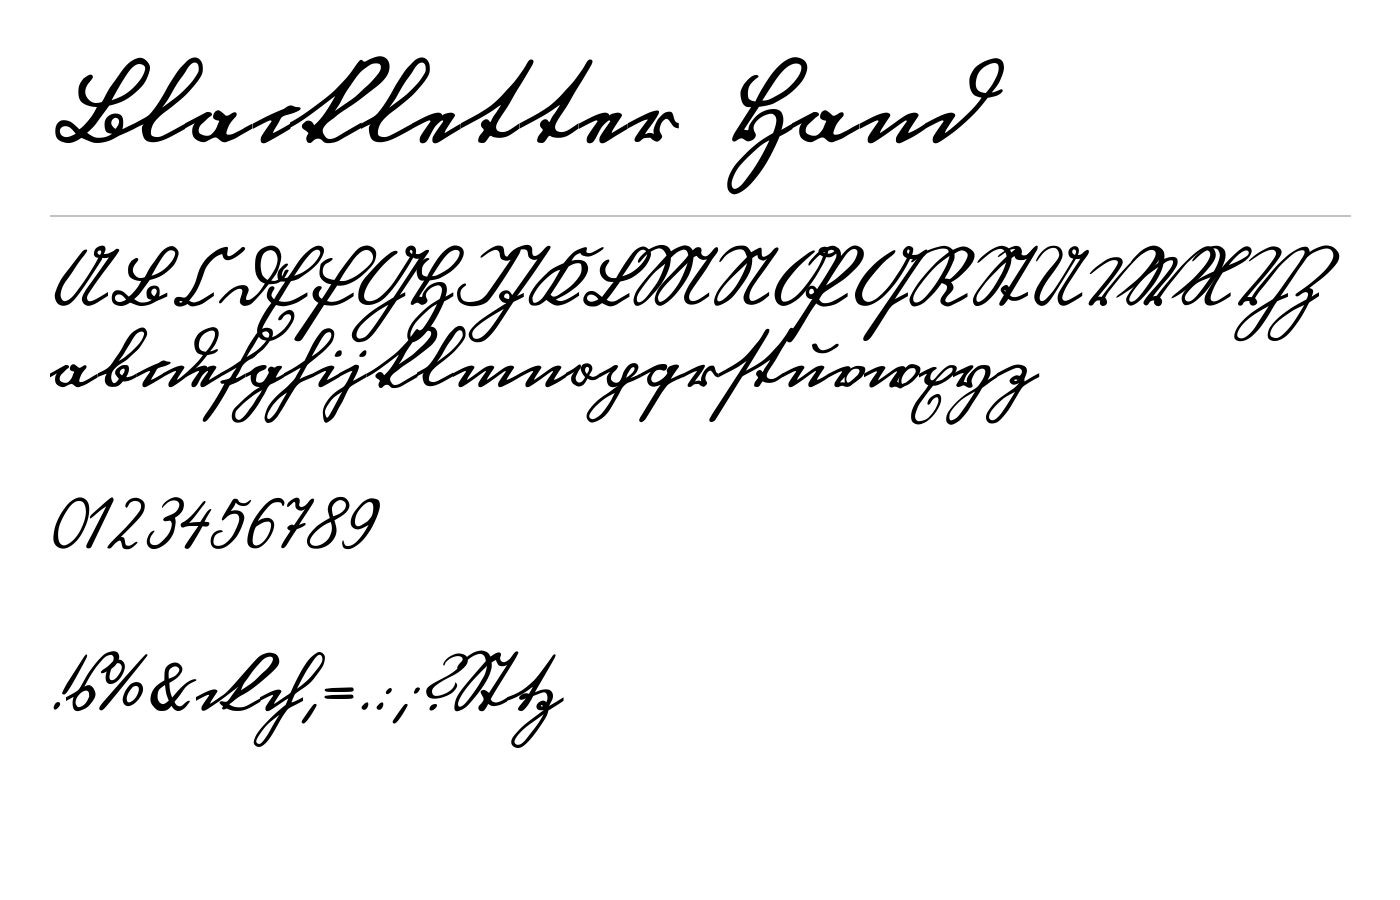 Blackletter Hand
ABCDEFGHIJKLMNOPQRSTUVWXYZ
abcdefghijklmnopqrstuvwxyz
0123456789